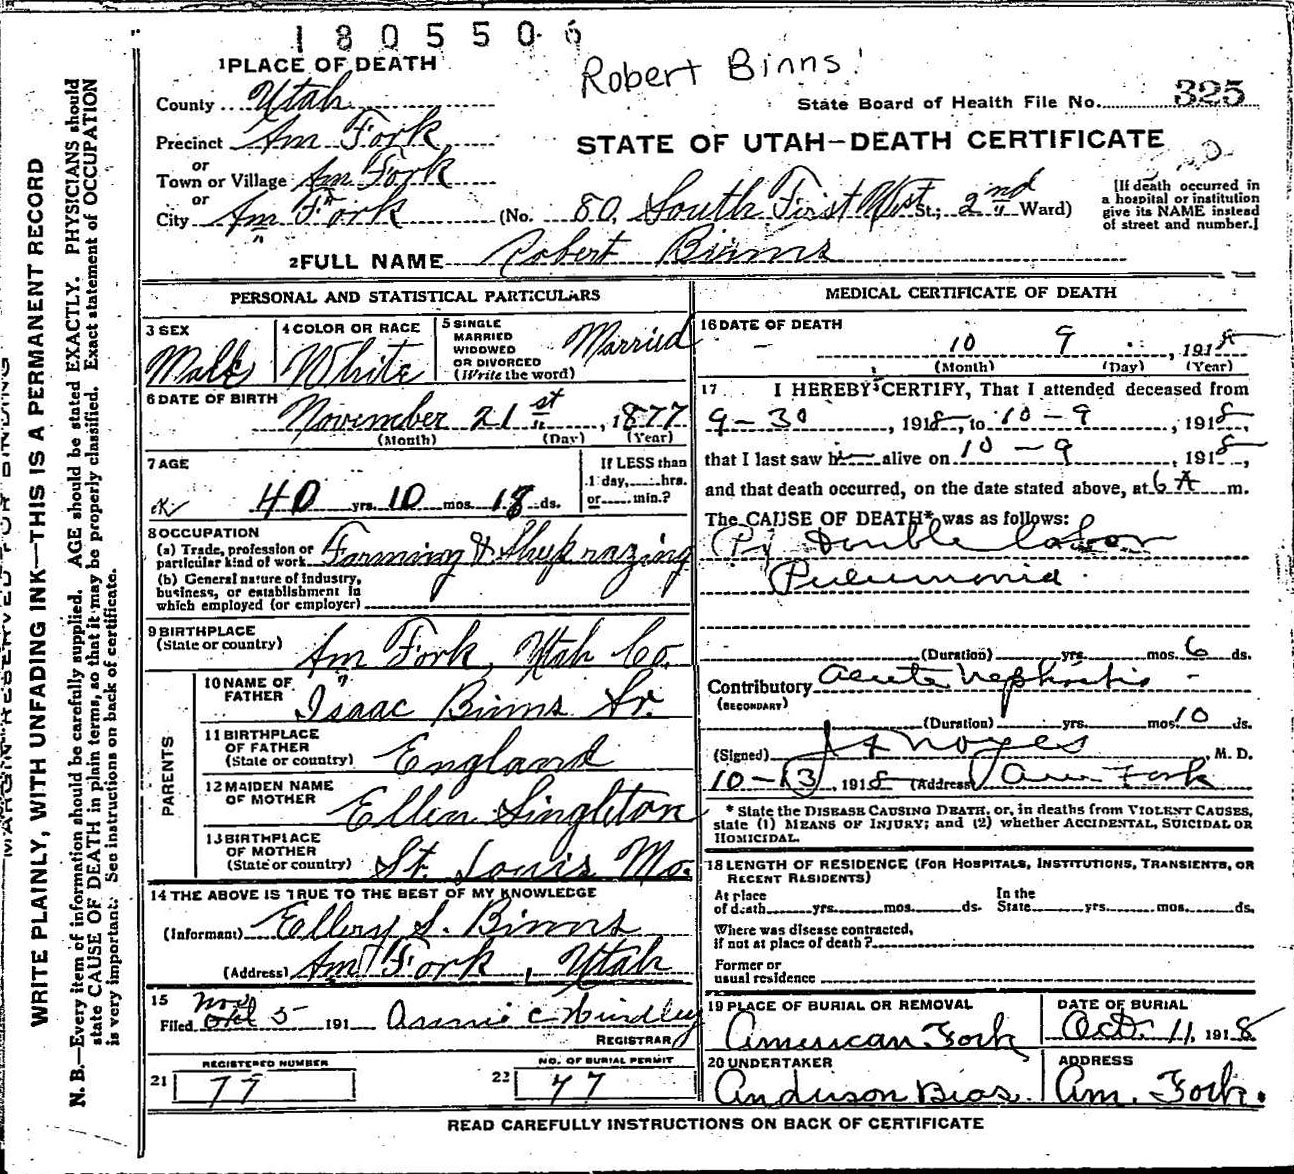 1805506
Robert Binns
1 PLACE OF DEATH
County Utah
State Board of Health File No. 325
Precinct Am Fork
STATE OF UTAH—DEATH CERTIFICATE
or
Town or Village Am Fork
or
City Am Fork (No. 80 South First West St.; 2nd Ward)
[If death occurred in a hospital or institution give its NAME instead of street and number.]
2 FULL NAME Robert Binns
PERSONAL AND STATISTICAL PARTICULARS
3 SEX
Male
4 COLOR OR RACE
White
5 SINGLE
MARRIED
WIDOWED
OR DIVORCED
(Write the word)
Married
6 DATE OF BIRTH
November 21st, 1877
(Month) (Day) (Year)
7 AGE
40 yrs. 10 mos. 18 ds.
If LESS than
1 day, hrs.
or min.?
8 OCCUPATION
(a) Trade, profession or
particular kind of work Farming &
(b) General nature of industry,
business, or establishment in
which employed (or employer)
9 BIRTHPLACE
(State or country) Am Fork, Utah Co.
PARENTS
10 NAME OF
FATHER Isaac Binns Sr.
11 BIRTHPLACE
OF FATHER
(State or country) England
12 MAIDEN NAME
OF MOTHER Ellen Singleton
13 BIRTHPLACE
OF MOTHER
(State or country) St. Louis Mo.
14 THE ABOVE IS TRUE TO THE BEST OF MY KNOWLEDGE
(Informant) Ellery S. Binns
(Address) Am Fork, Utah
15
Filed Nov 5 191
REGISTRAR
REGISTERED NUMBER
21 77
NO. OF BURIAL PERMIT
22 77
MEDICAL CERTIFICATE OF DEATH
16 DATE OF DEATH
10 9, 1918
(Month) (Day) (Year)
17 I HEREBY CERTIFY, That I attended deceased from
9-30, 1918, to 10-9, 1918,
that I last saw h alive on 10-9, 1918,
and that death occurred, on the date stated above, at 6 A m.
The CAUSE OF DEATH* was as follows:
Double Lobar
Pneumonia
(Duration) yrs. mos. 6 ds.
Contributory Acute Nephritis
(SECONDARY)
(Duration) yrs. mos. 10 ds.
(Signed) Noyes M. D.
10-13, 1918 (Address) Am Fork
* State the DISEASE CAUSING DEATH, or, in deaths from VIOLENT CAUSES,
state (1) MEANS OF INJURY; and (2) whether ACCIDENTAL, SUICIDAL OR
HOMICIDAL.
18 LENGTH OF RESIDENCE (FOR HOSPITALS, INSTITUTIONS, TRANSIENTS, OR
RECENT RESIDENTS)
At place
of death yrs. mos. ds.
In the
State yrs. mos. ds.
Where was disease contracted,
if not at place of death?
Former or
usual residence
19 PLACE OF BURIAL OR REMOVAL
American Fork
DATE OF BURIAL
Oct. 11, 1918
20 UNDERTAKER
Anderson Bros.
ADDRESS
Am. Fork.
READ CAREFULLY INSTRUCTIONS ON BACK OF CERTIFICATE
MARGIN RESERVED FOR BINDING
WRITE PLAINLY, WITH UNFADING INK—THIS IS A PERMANENT RECORD
N. B.—Every item of information should be carefully supplied. AGE should be stated EXACTLY. PHYSICIANS should
state CAUSE OF DEATH in plain terms, so that it may be properly classified. Exact statement of OCCUPATION
is very important. See instructions on back of certificate.